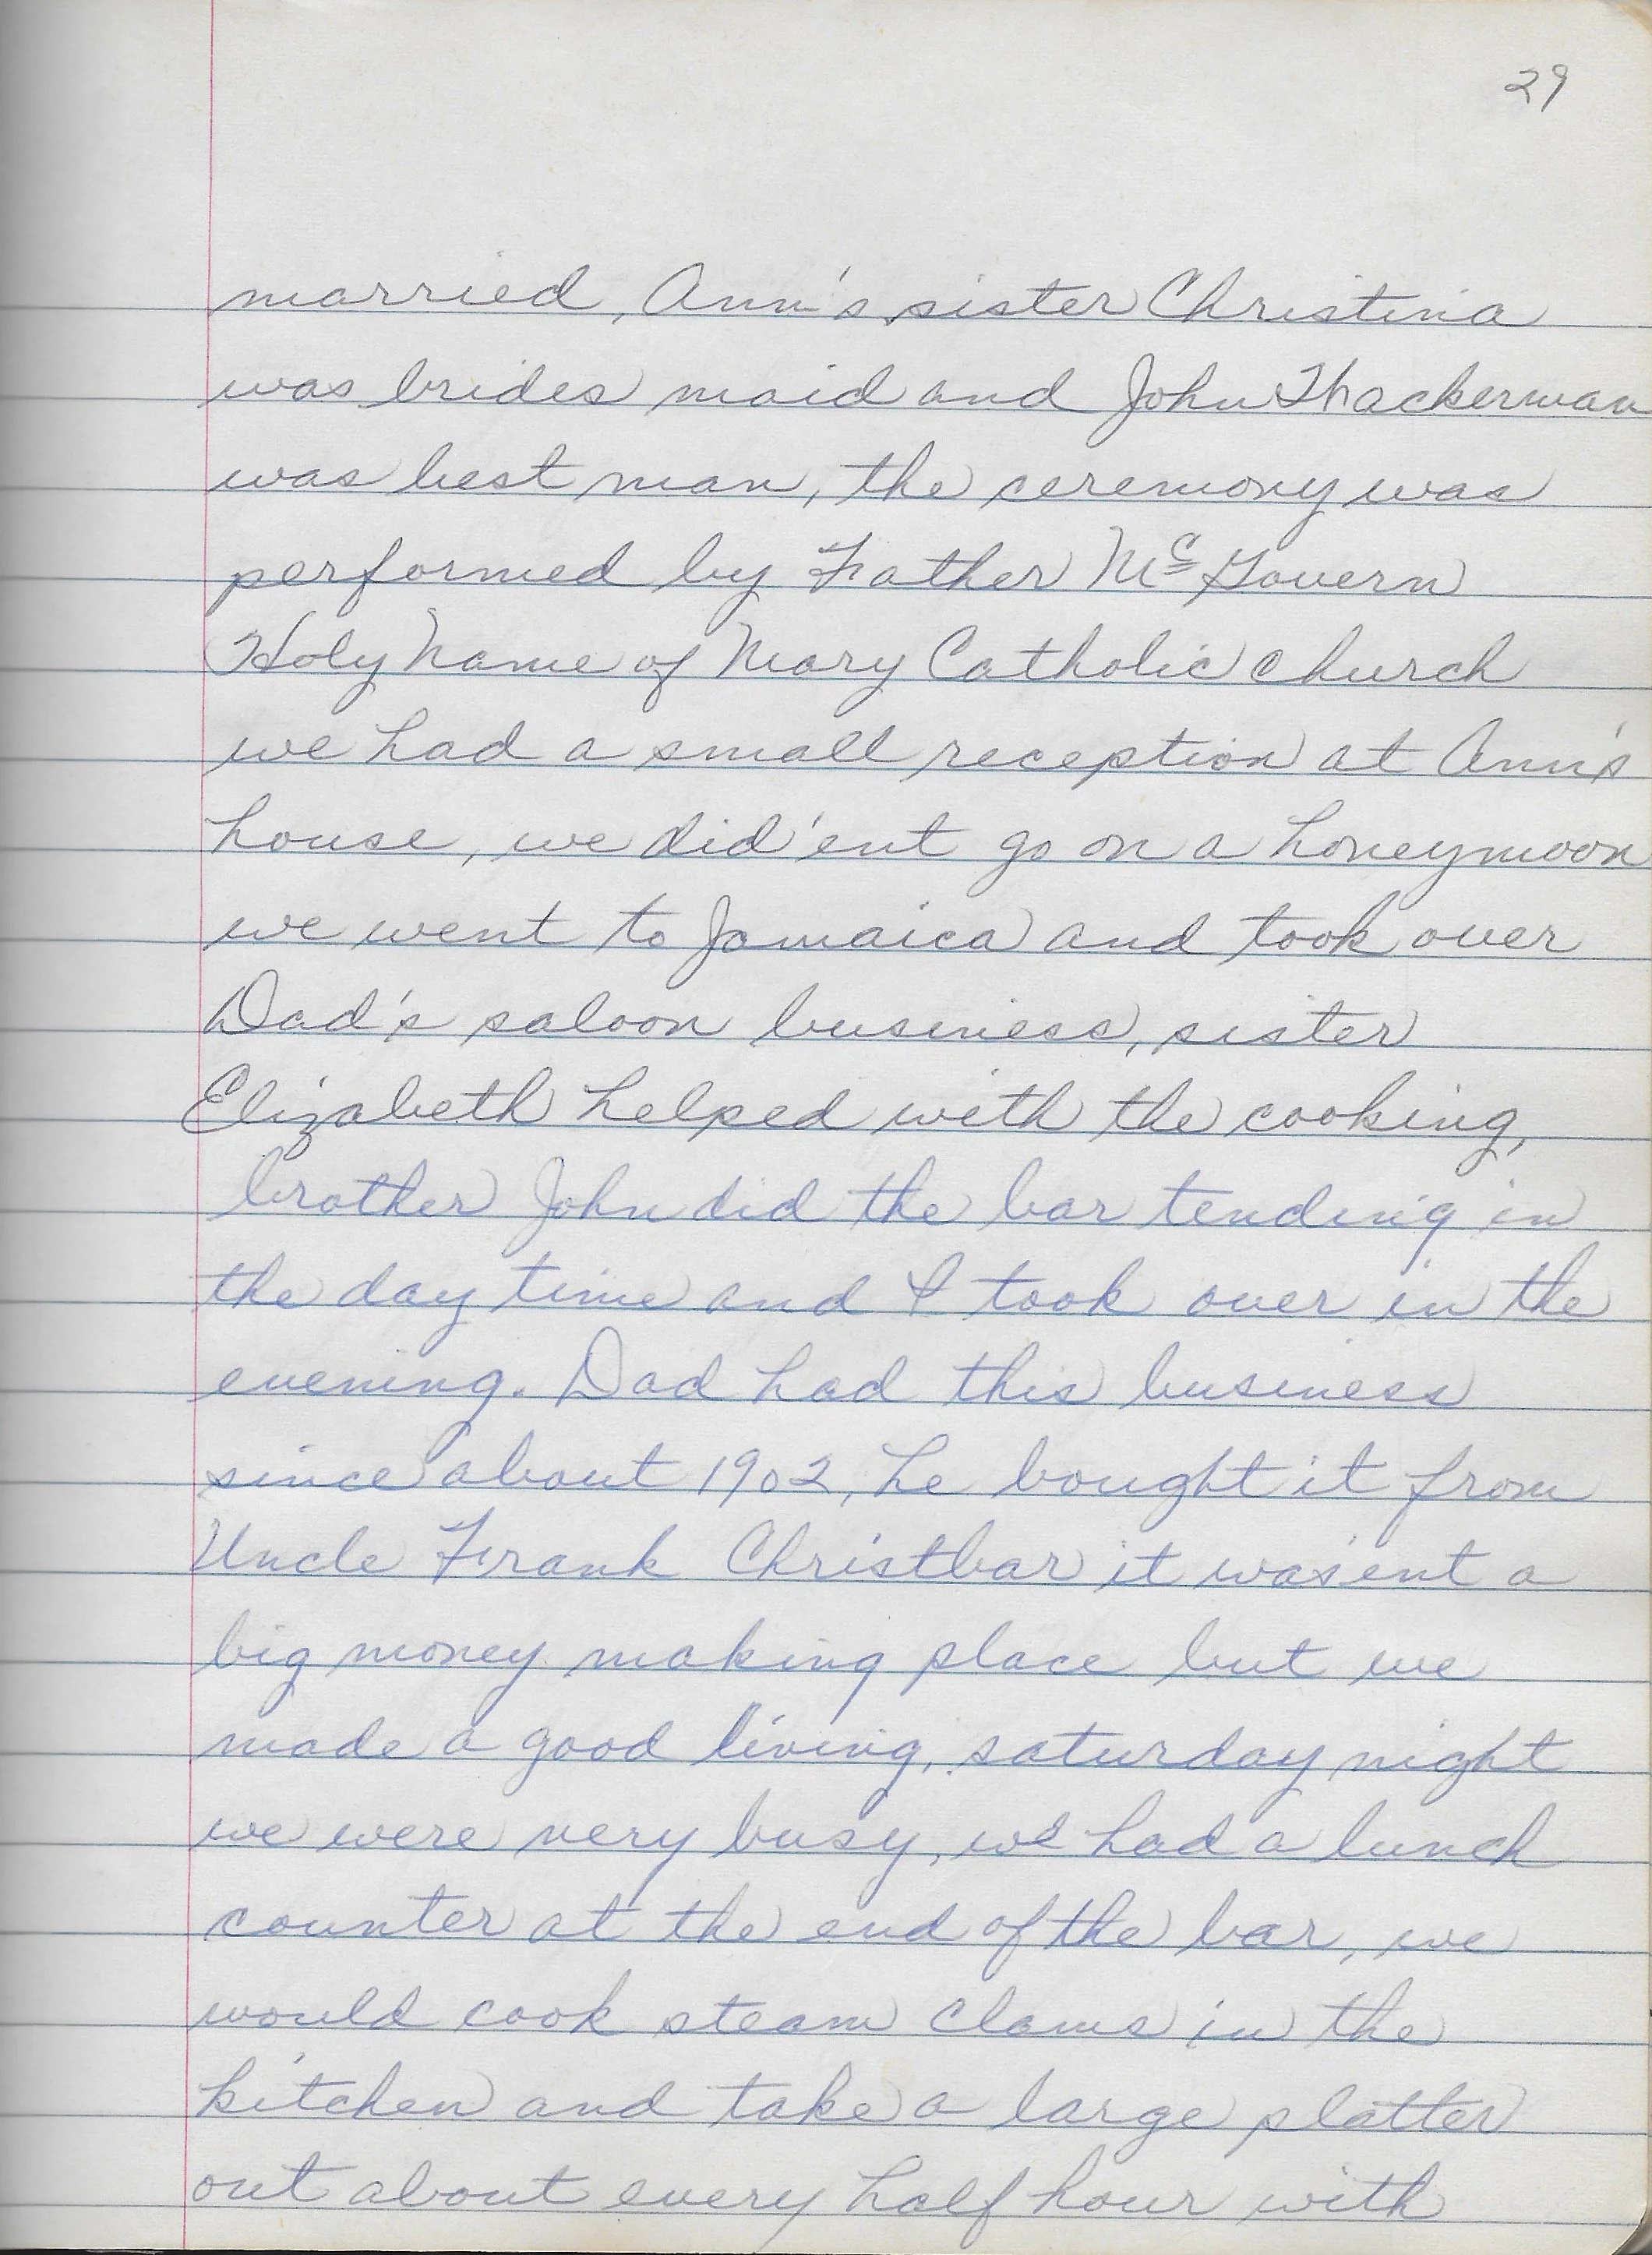 29
married, Ann's sister Christina
was brides maid and John Thackerman
was best man, the ceremony was
performed by Father McGovern
Holy Name of Mary Catholic church
we had a small reception at Ann's
house, we did'ent go on a honeymoon
we went to Jamaica and took over
Dad's saloon business, sister
Elizabeth helped with the cooking,
brother John did the bar tending in
the day time and I took over in the
evening. Dad had this business
since about 1902, he bought it from
Uncle Frank Christbar it was'ent a
big money making place but we
made a good living, saturday night
we were very busy, we had a lunch
counter at the end of the bar, we
would cook steam clams in the
kitchen and take a large platter
out about every half hour with